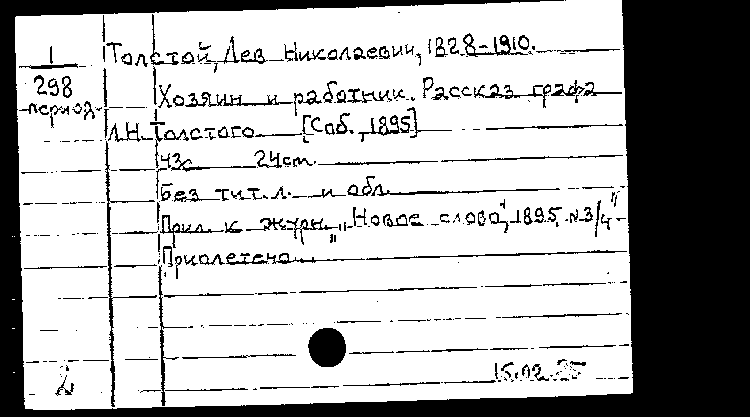 1
298
период.
Толстой, Лев Николаевич, 1828-1910.
Хозяин и работник. Рассказ графа
Л.Н. Толстого [Спб., 1895]
43с 24см.
Без тит. л. и обл.
Прил. к журн. „Новое слово", 1895, №3/4"
Приплетено...
2
15.02.